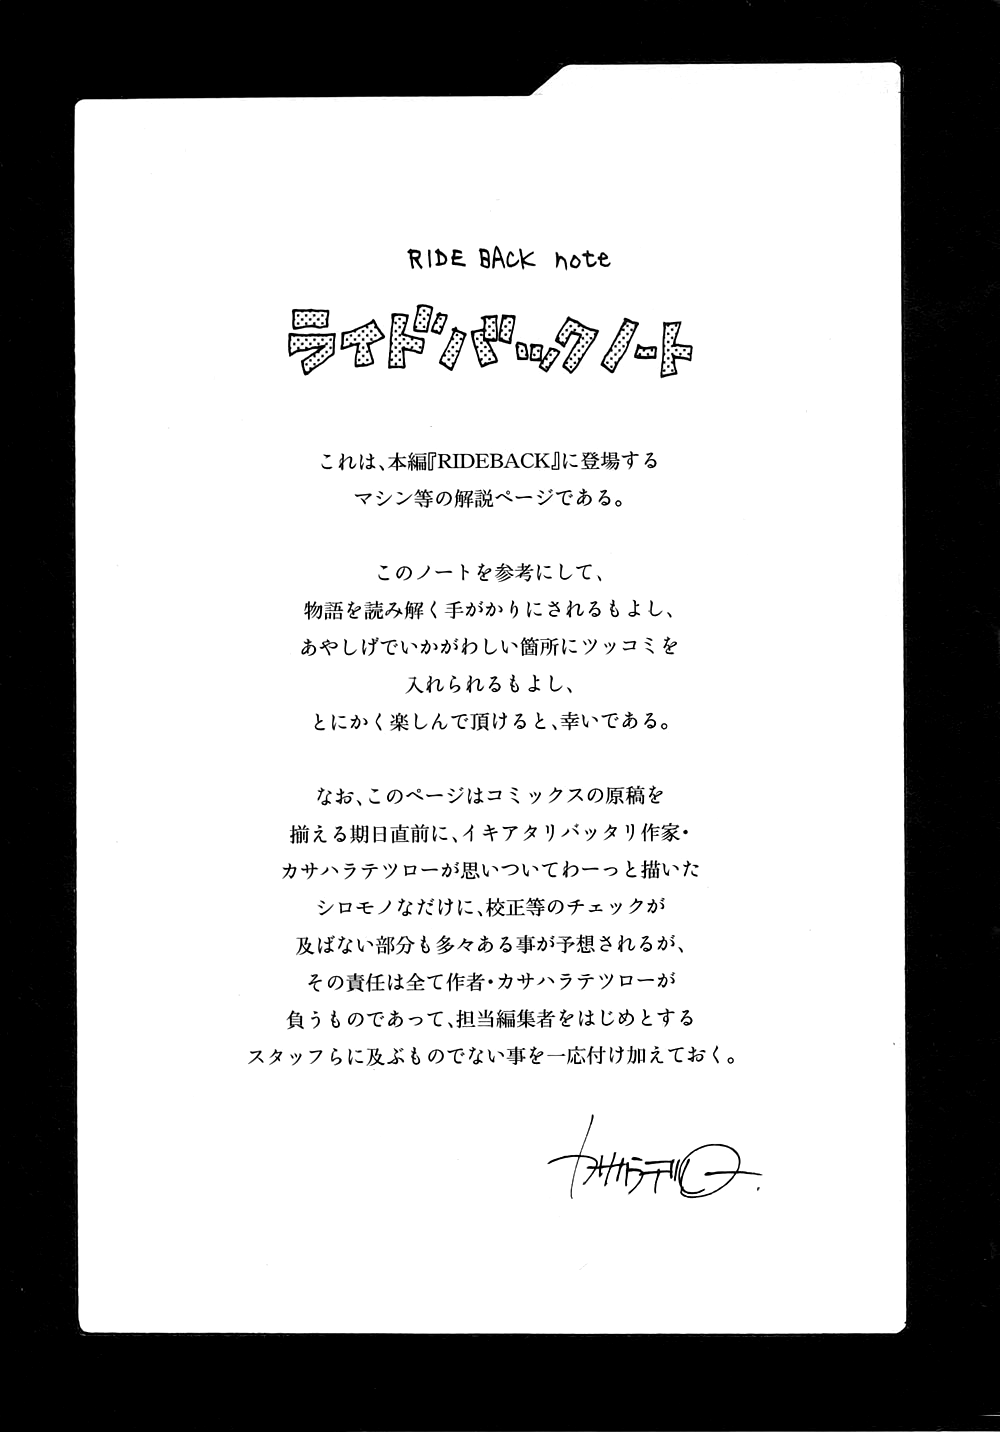 RIDE BACK note
ライドバックノート
これは、本編『RIDEBACK』に登場する
マシン等の解説ページである。
このノートを参考にして、
物語を読み解く手がかりにされるもよし、
あやしげでいかがわしい箇所にツッコミを
入れられるもよし、
とにかく楽しんで頂けると、幸いである。
なお、このページはコミックスの原稿を
揃える期日直前に、イキアタリバッタリ作家・
カサハラテツローが思いついてわーっと描いた
シロモノなだけに、校正等のチェックが
及ばない部分も多々ある事が予想されるが、
その責任は全て作者・カサハラテツローが
負うものであって、担当編集者をはじめとする
スタッフらに及ぶものでない事を一応付け加えておく。
カサハラテツロー